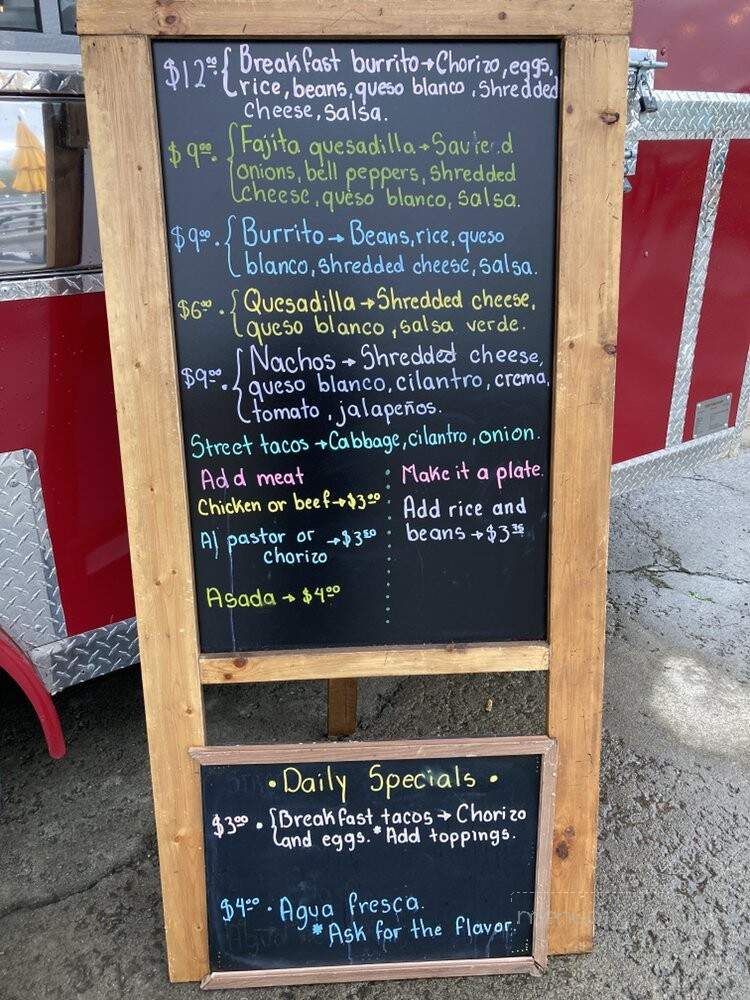 $12.00 { Breakfast burrito → Chorizo, eggs,
rice, beans, queso blanco, shredded
cheese, salsa.
$9.00. { Fajita quesadilla → Sauteed
onions, bell peppers, shredded
cheese, queso blanco, salsa.
$9.00. { Burrito → Beans, rice, queso
blanco, shredded cheese, salsa.
$6.00. { Quesadilla → Shredded cheese,
queso blanco, salsa verde.
$9.00. { Nachos → Shredded cheese,
queso blanco, cilantro, crema,
tomato, jalapeños.
Street tacos → Cabbage, cilantro, onion.
Add meat
Chicken or beef → $3.00
Al pastor or → $3.50
chorizo
Asada → $4.00
Make it a plate.
Add rice and
beans → $3.75
• Daily Specials •
$3.00 • { Breakfast tacos → Chorizo
and eggs. *Add toppings.
$4.00 • Agua fresca.
*Ask for the flavor.